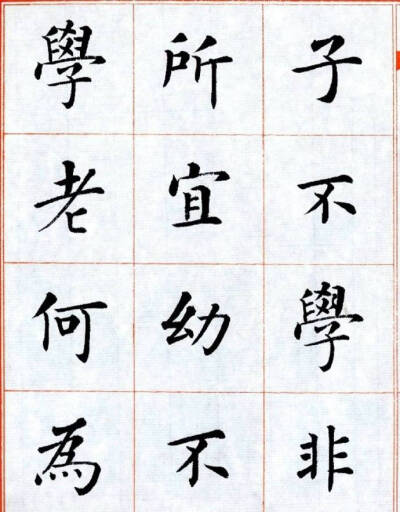 子不學非
所宜幼不
學老何為